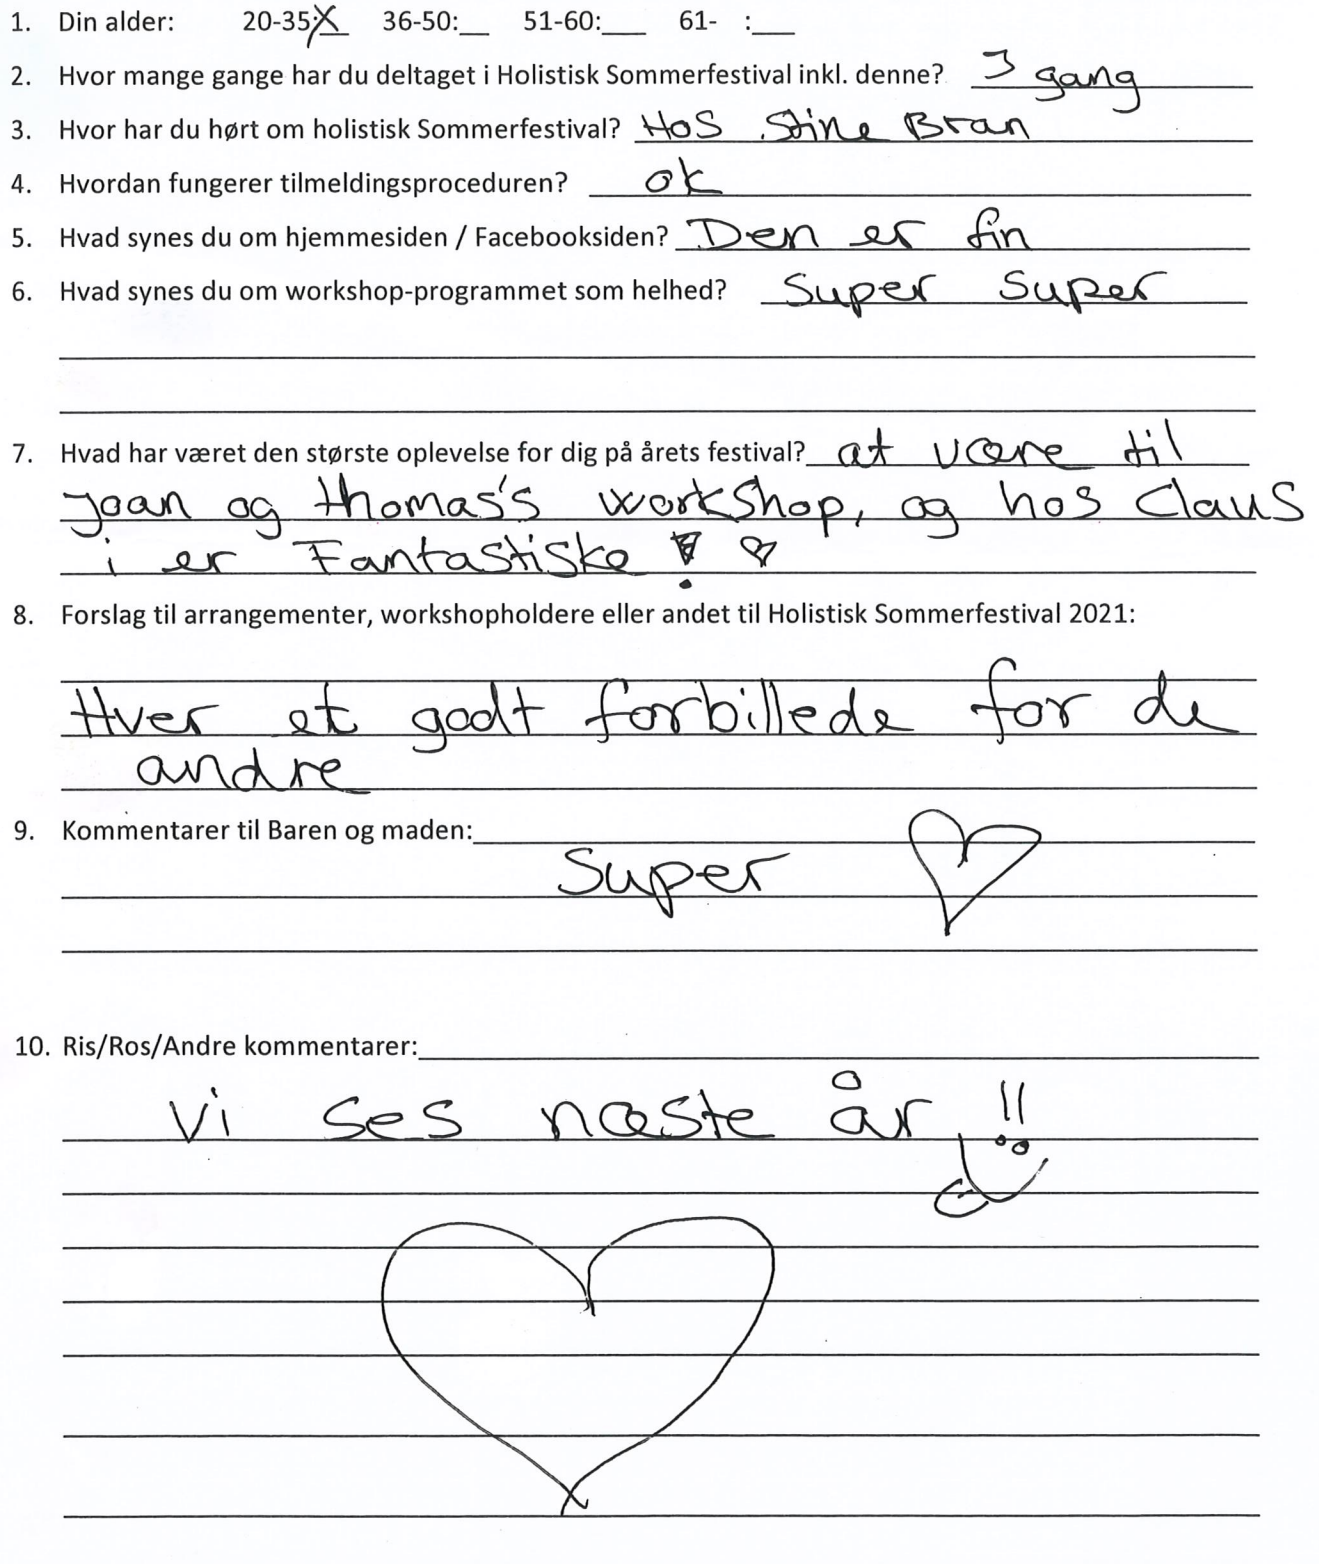 1. Din alder: 20-35:X 36-50:__ 51-60:___ 61- :___
2. Hvor mange gange har du deltaget i Holistisk Sommerfestival inkl. denne? 3 gang
3. Hvor har du hørt om holistisk Sommerfestival? Hos Stine Bran
4. Hvordan fungerer tilmeldingsproceduren? ok
5. Hvad synes du om hjemmesiden / Facebooksiden? Den er fin
6. Hvad synes du om workshop-programmet som helhed? Super Super
7. Hvad har været den største oplevelse for dig på årets festival? at være til
Joan og thomas's workshop, og hos Claus
i er Fantastiske ! ♡
8. Forslag til arrangementer, workshopholdere eller andet til Holistisk Sommerfestival 2021:
Hver et godt forbillede for de
andre
9. Kommentarer til Baren og maden:
Super ♡
10. Ris/Ros/Andre kommentarer:
Vi ses næste år !!